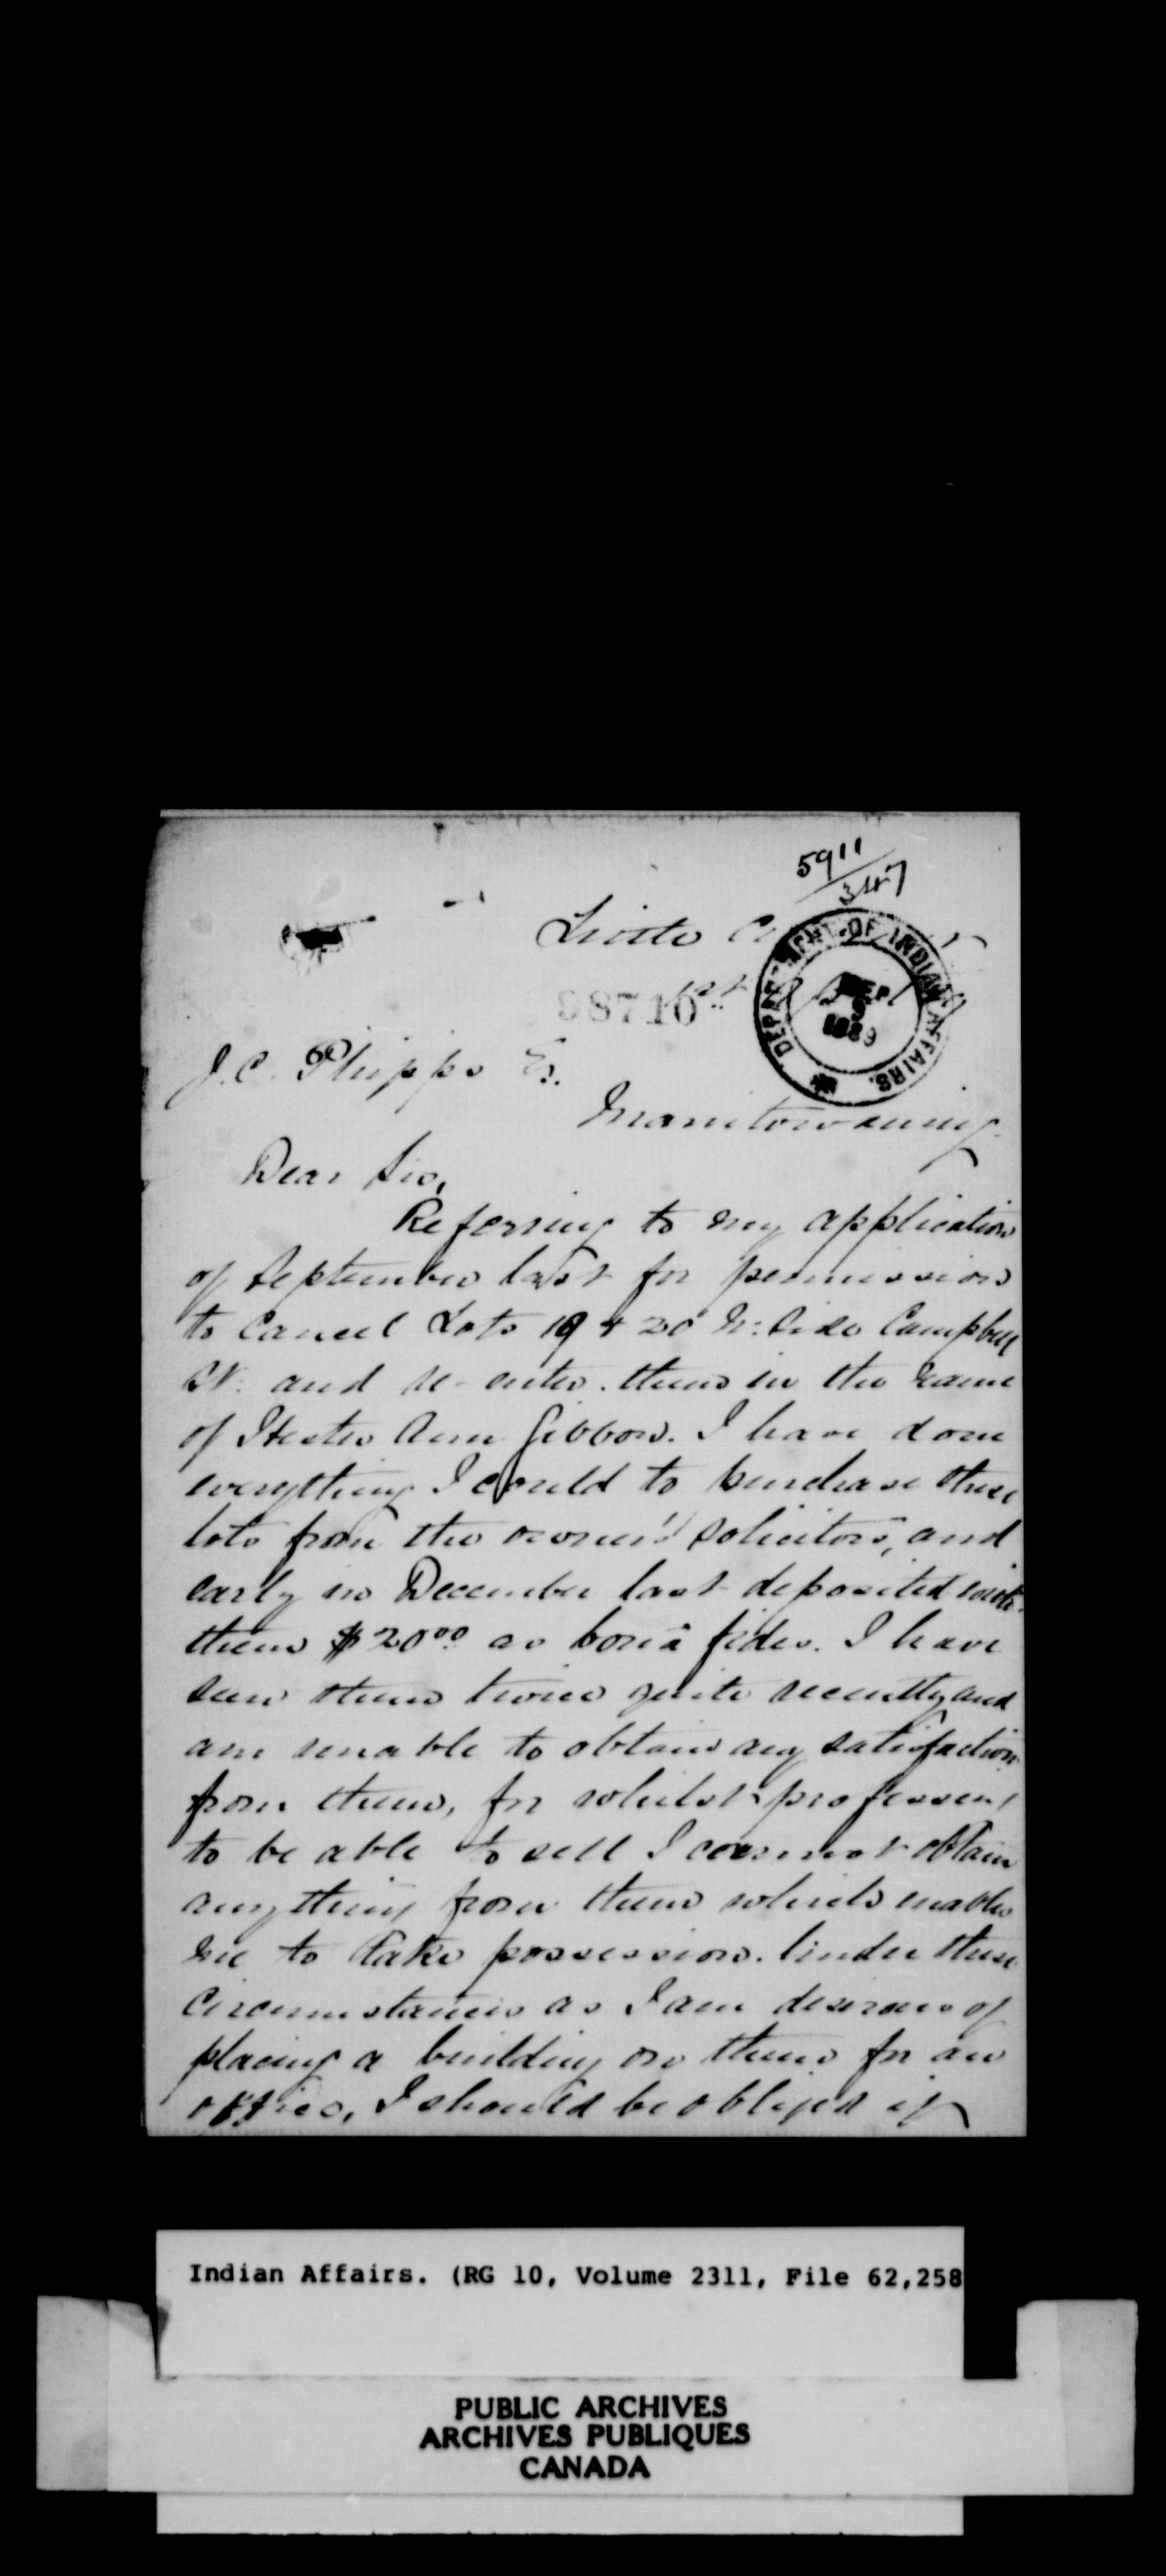 5911
347
Little C
98710
1st
DEPARTMENT OF INDIAN AFFAIRS.
SEP
9
1889
J. C. Phipps Es.
Manitowaning
Dear Sir,
Referring to my application
of September last for permission
to cancel Lots 19 & 20 N: Side Campbell
St. and re-enter them in the name
of Hester Ann Gibbon. I have done
everything I could to purchase these
lots from the owner's solicitors, and
early in December last deposited with
them $20.00 as bonâ fides. I have
seen them twice quite recently and
am unable to obtain any satisfaction
from them, for whilst professing
to be able to sell I cannot obtain
anything from them which enables
me to take possession. Under these
circumstances as I am desirous of
placing a building on them for an
office, I should be obliged if
Indian Affairs. (RG 10, Volume 2311, File 62,258
PUBLIC ARCHIVES
ARCHIVES PUBLIQUES
CANADA